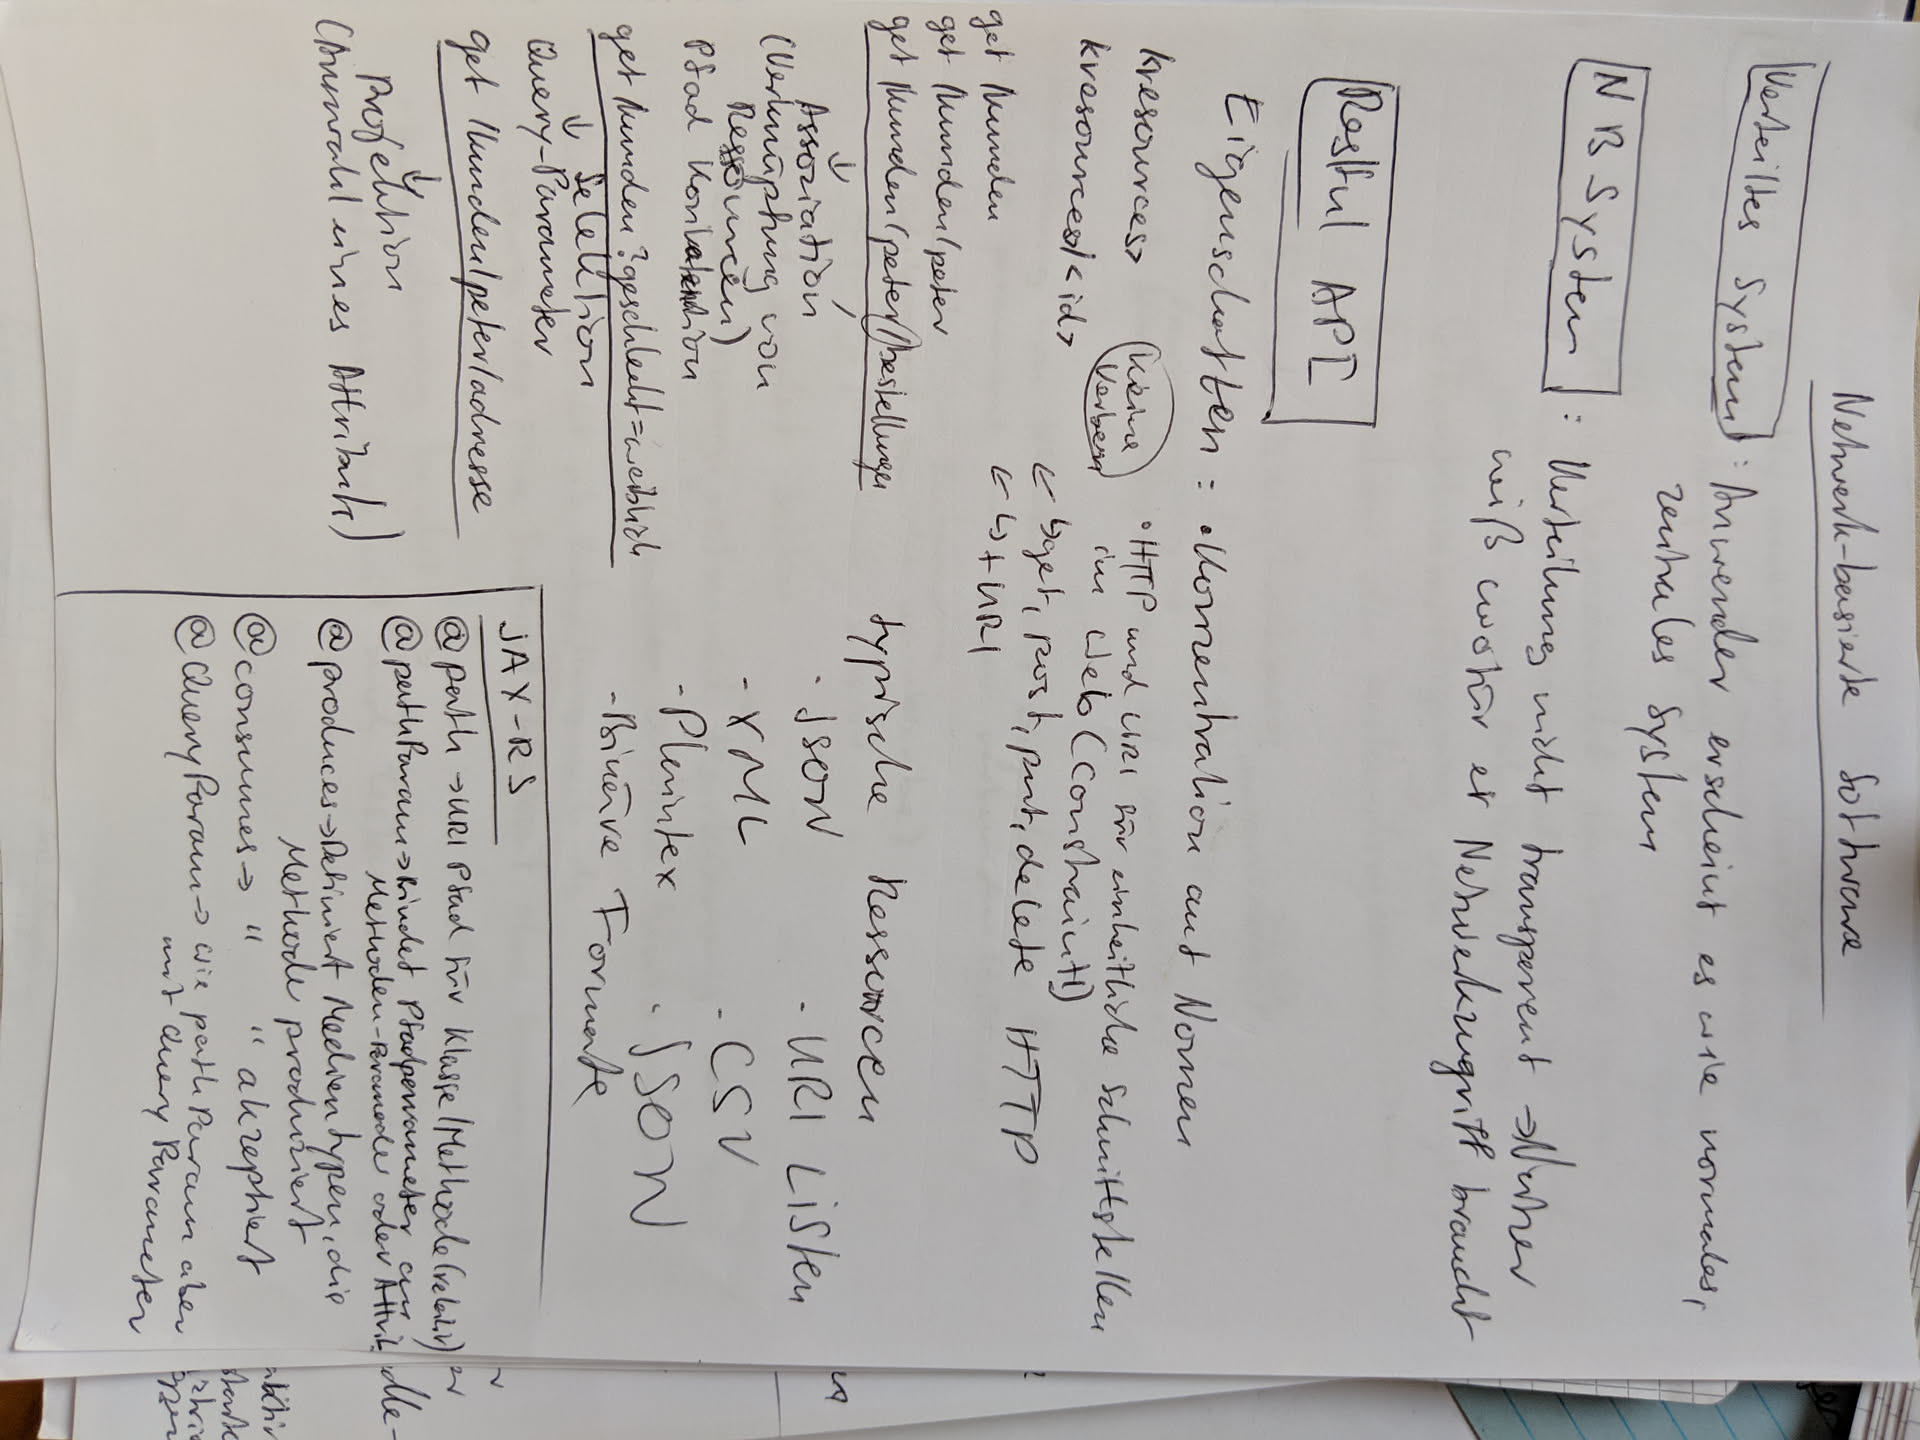 Netwerk-basierte Software
Verteiltes System: Anwender erscheint es wie normales,
zentrales System
NB System: Verteilung nicht transparent → Nutzer
weiß wofür er Netzwerkzugriff braucht
Restful API
Eigenschaften: • Konzentration auf Nomen
<resources>
keine Verben
• HTTP und URI für einheitliche Schnittstellen
im Web (Constraint!)
<resources>/<id>
↳ get, post, put, delete HTTP
↳ + URI
get /kunden
get /kunden/peter
get /kunden/peter/bestellungen
↓
Assoziation
(Verknüpfung von
Ressourcen)
Pfad Konkatention
get /kunden?geschlecht=weiblich
↓ Selektion
Query-Parameter
get /kunden/peter/adresse
↓
Projektion
(Auswahl eines Attributs)
typische Ressourcen
- JSON
- XML
- Plaintex
- Binäre Formate
- URI Listen
- CSV
- JSON
JAX-RS
@path → URI Pfad für Klasse/Methode (relativ)
@pathParam → Bindet Pfadparameter an
Methoden-Paramode oder Attrib.
@produces → Definiert Medientypen, die
Methode produziert
@consumes → " " akzeptiert
@QueryParam → wie pathParam aber
mit Query Parameter